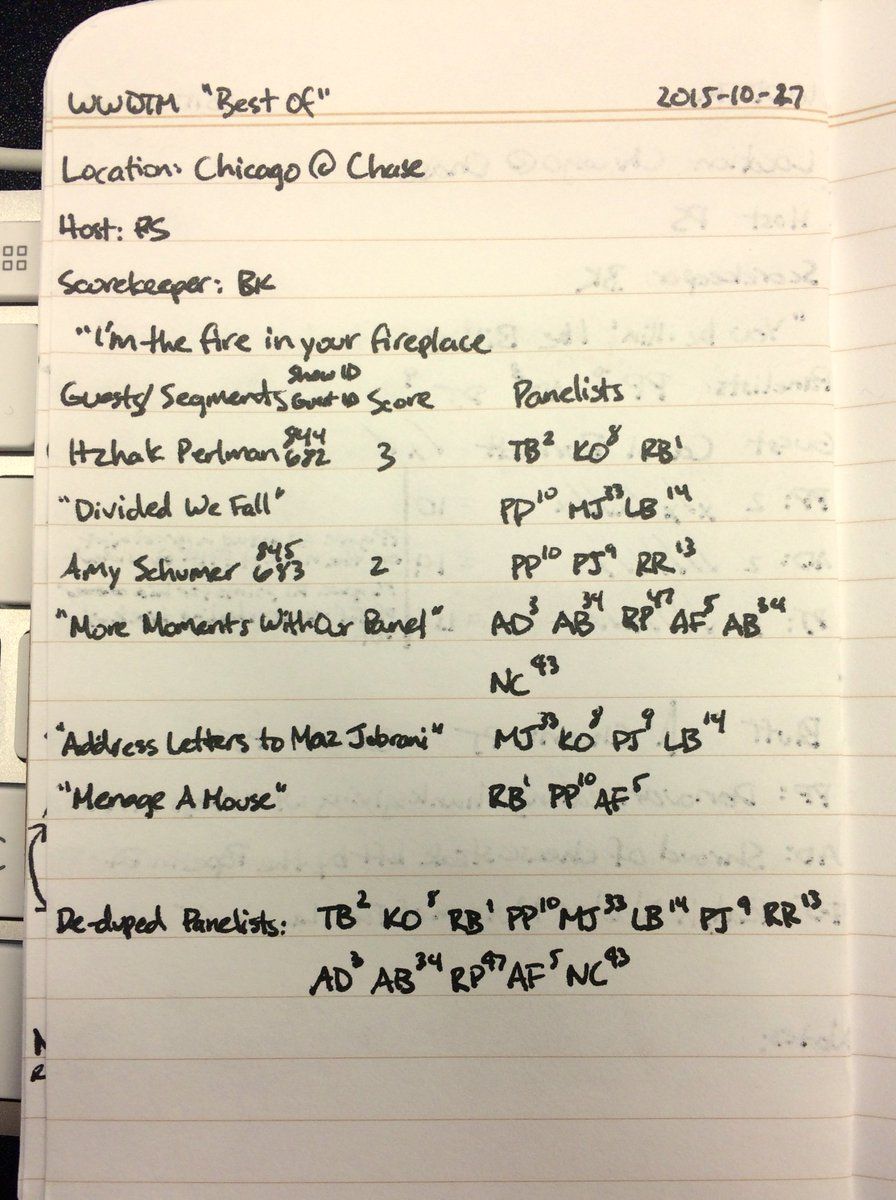 WWDTM "Best Of" 2015-10-27
Location: Chicago @ Chase
Host: PS
Scorekeeper: BK
"I'm the fire in your fireplace
Show ID
Guests/Segments Guest ID Score Panelists
844
Itzhak Perlman 682 3 TB² KO⁸ RB¹
"Divided We Fall" PP¹⁰ MJ³³ LB¹⁴
845
Amy Schumer 683 2 PP¹⁰ PJ⁹ RR¹³
"More Moments With Our Panel" AD³ AB³⁴ RP⁴⁷ AF⁵ AB³⁴
NC⁴³
"Address Letters to Maz Jobrani" MJ³³ KO⁸ PJ⁹ LB¹⁴
"Menage A Mouse" RB¹ PP¹⁰ AF⁵
De-duped Panelists: TB² KO⁸ RB¹ PP¹⁰ MJ³³ LB¹⁴ PJ⁹ RR¹³
AD³ AB³⁴ RP⁴⁷ AF⁵ NC⁴³